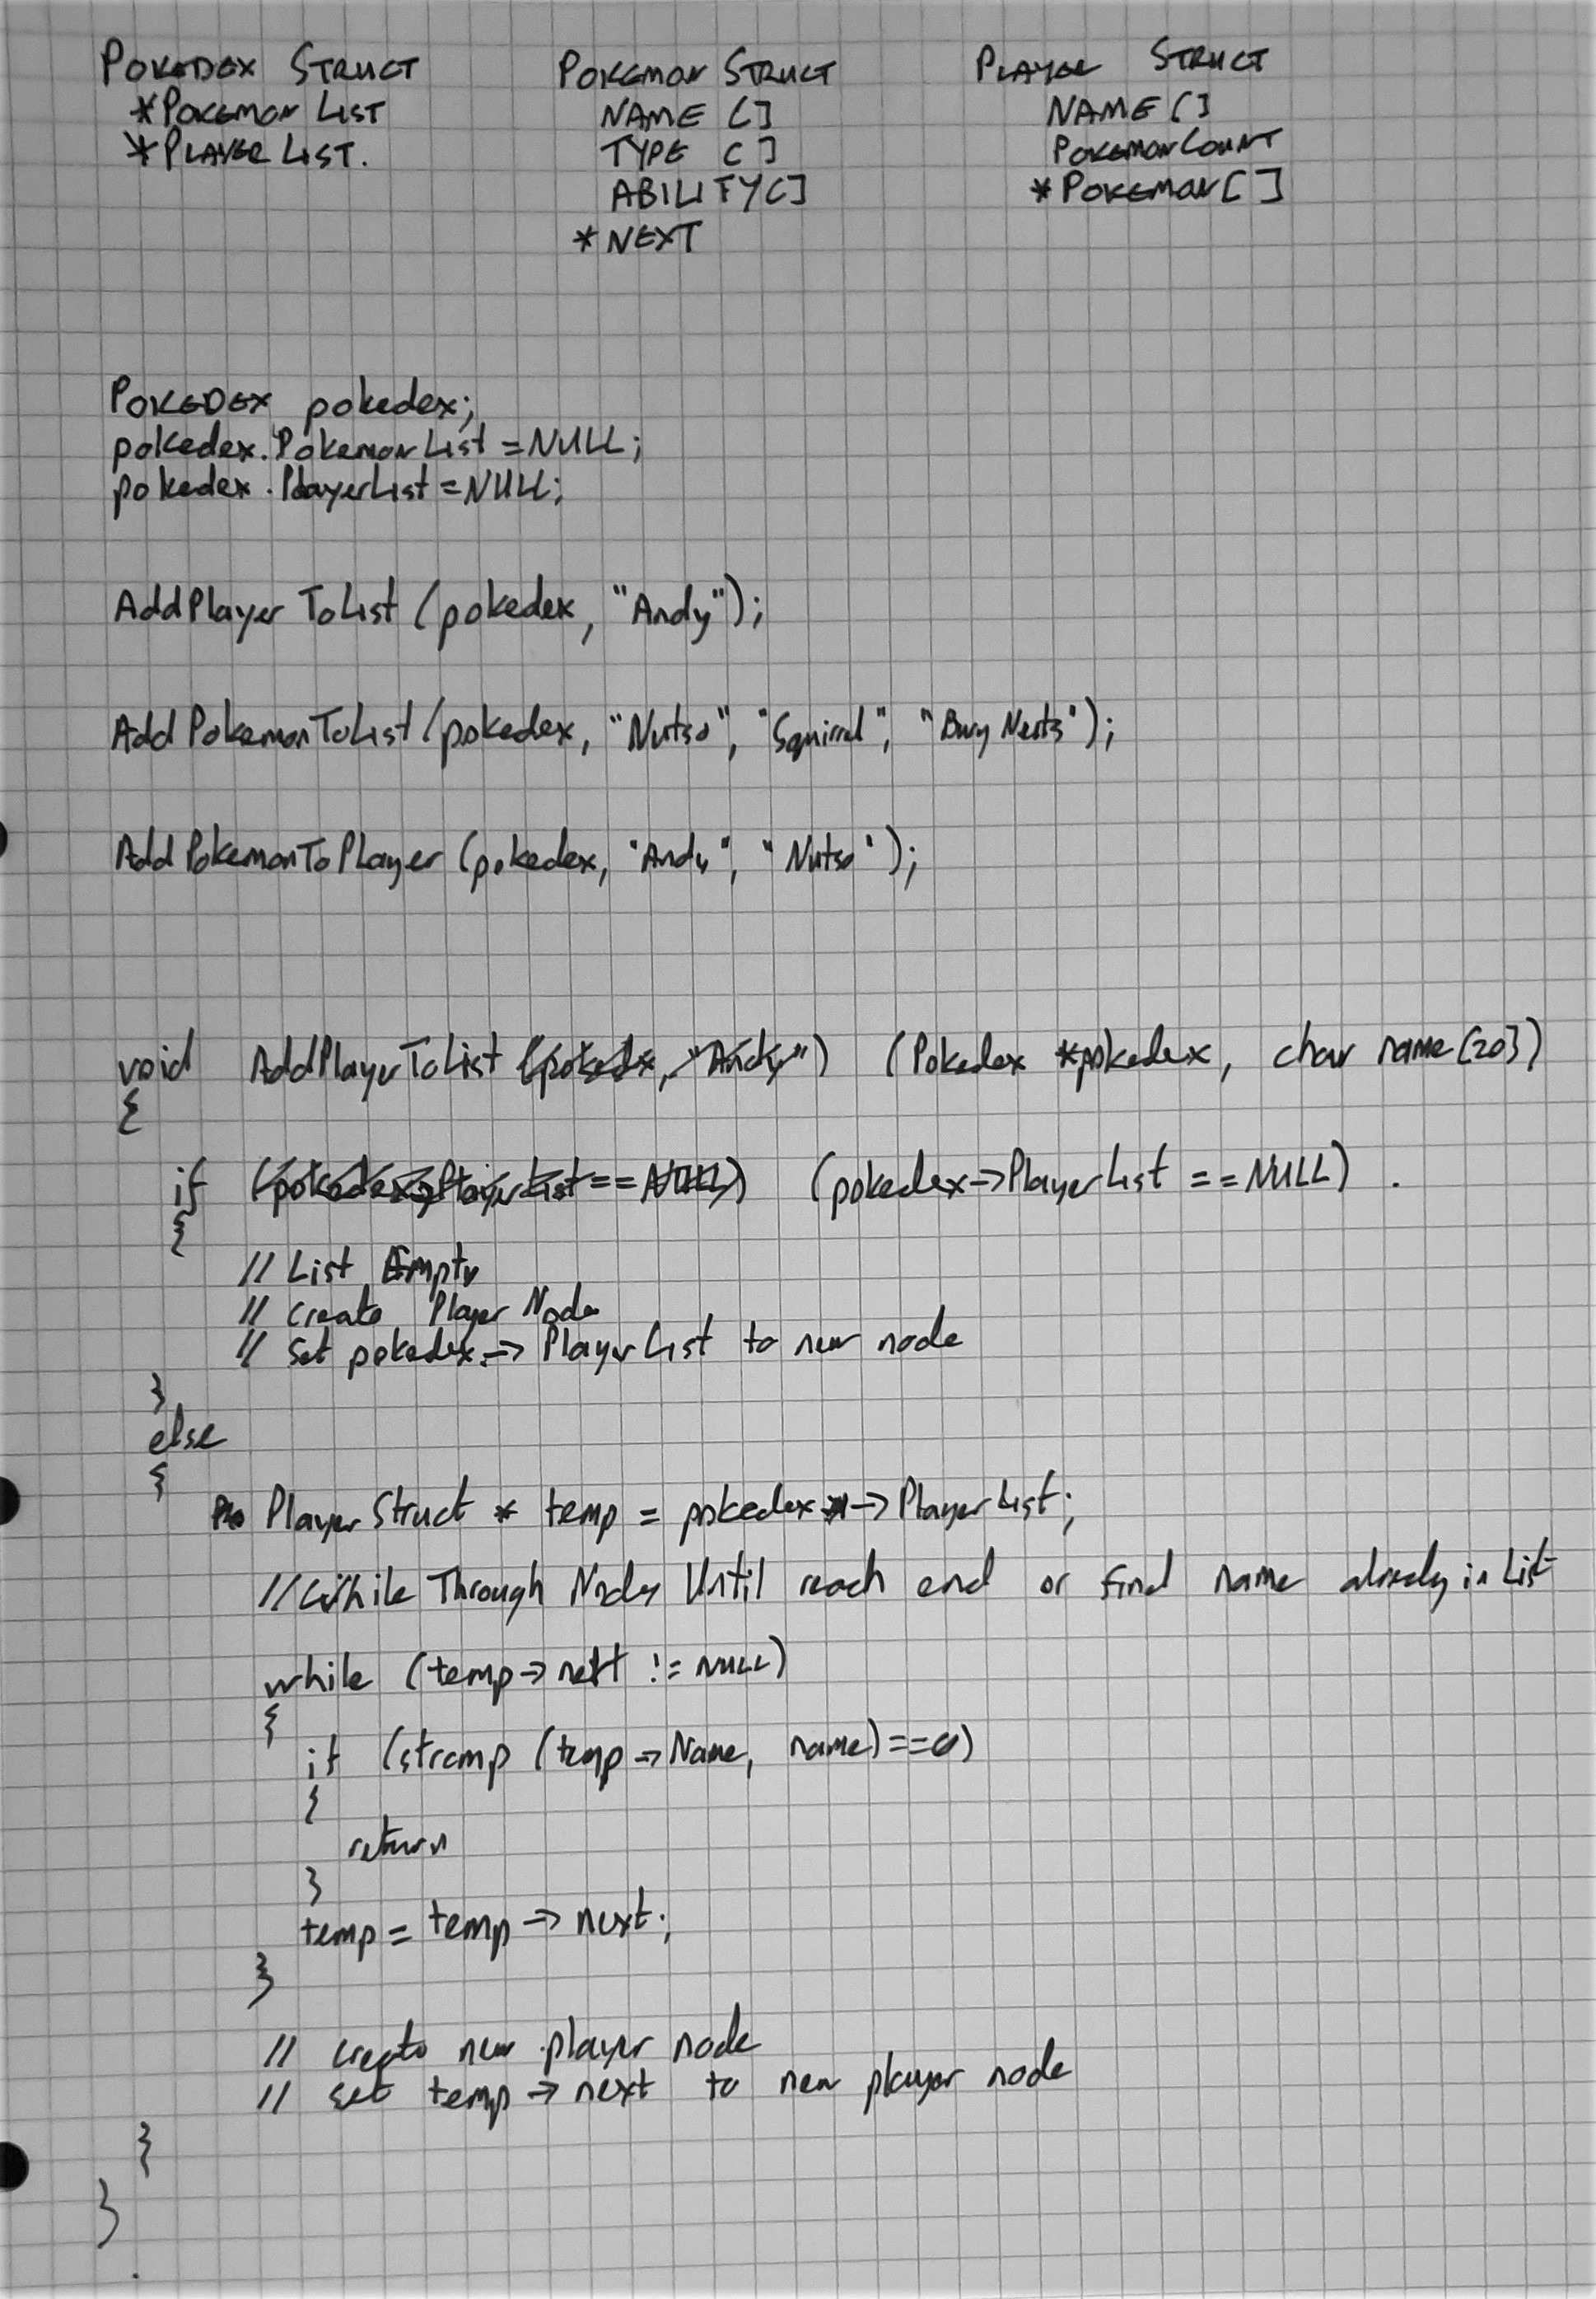 POKEDEX STRUCT
*POKEMON LIST
*PLAYER LIST.
POKEMON STRUCT
NAME []
TYPE []
ABILITY[]
*NEXT
PLAYER STRUCT
NAME []
POKEMONCOUNT
*POKEMON[]
POKEDEX pokedex;
pokedex.PokemonList = NULL;
pokedex.PlayerList = NULL;
AddPlayerToList (pokedex, "Andy");
AddPokemonToList (pokedex, "Nutso", "Squirrel", "Bury Neuts");
AddPokemonToPlayer (pokedex, "Andy", "Nutso");
void AddPlayerToList (pokedex, "Andy") (Pokedex *pokedex, char name[20])
{
if (pokedex->PlayerList == NULL) (pokedex->PlayerList == NULL) .
{
// List Empty
// Create Player Node
// Set pokedex-> PlayerList to new node
}
else
{
PlayerStruct * temp = pokedex -> PlayerList;
// While Through Nodes Until reach end or find name already in List
while (temp->next != NULL)
{
if (strcmp (temp->Name, name) == 0)
{
return
}
temp = temp -> next;
}
// create new player node
// set temp -> next to new player node
}
}